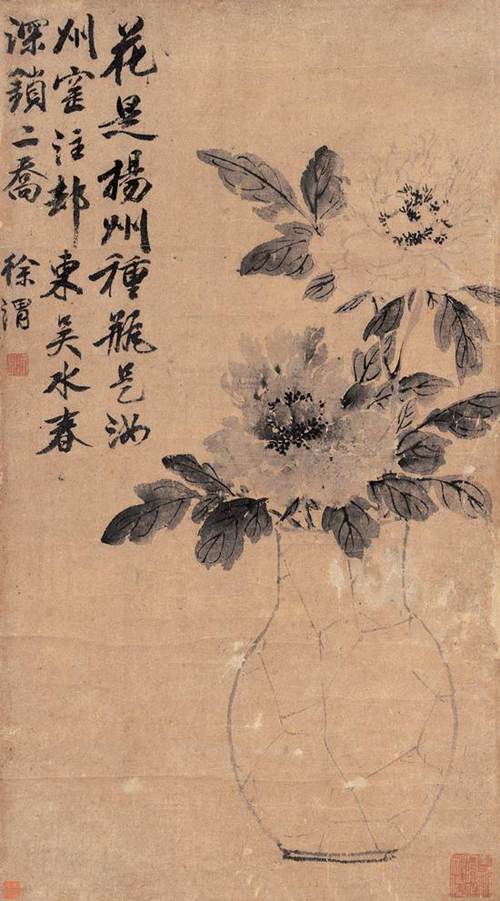 花是揚州種瓶是汝
州窑注却東吳水春
深鎖二喬
徐渭